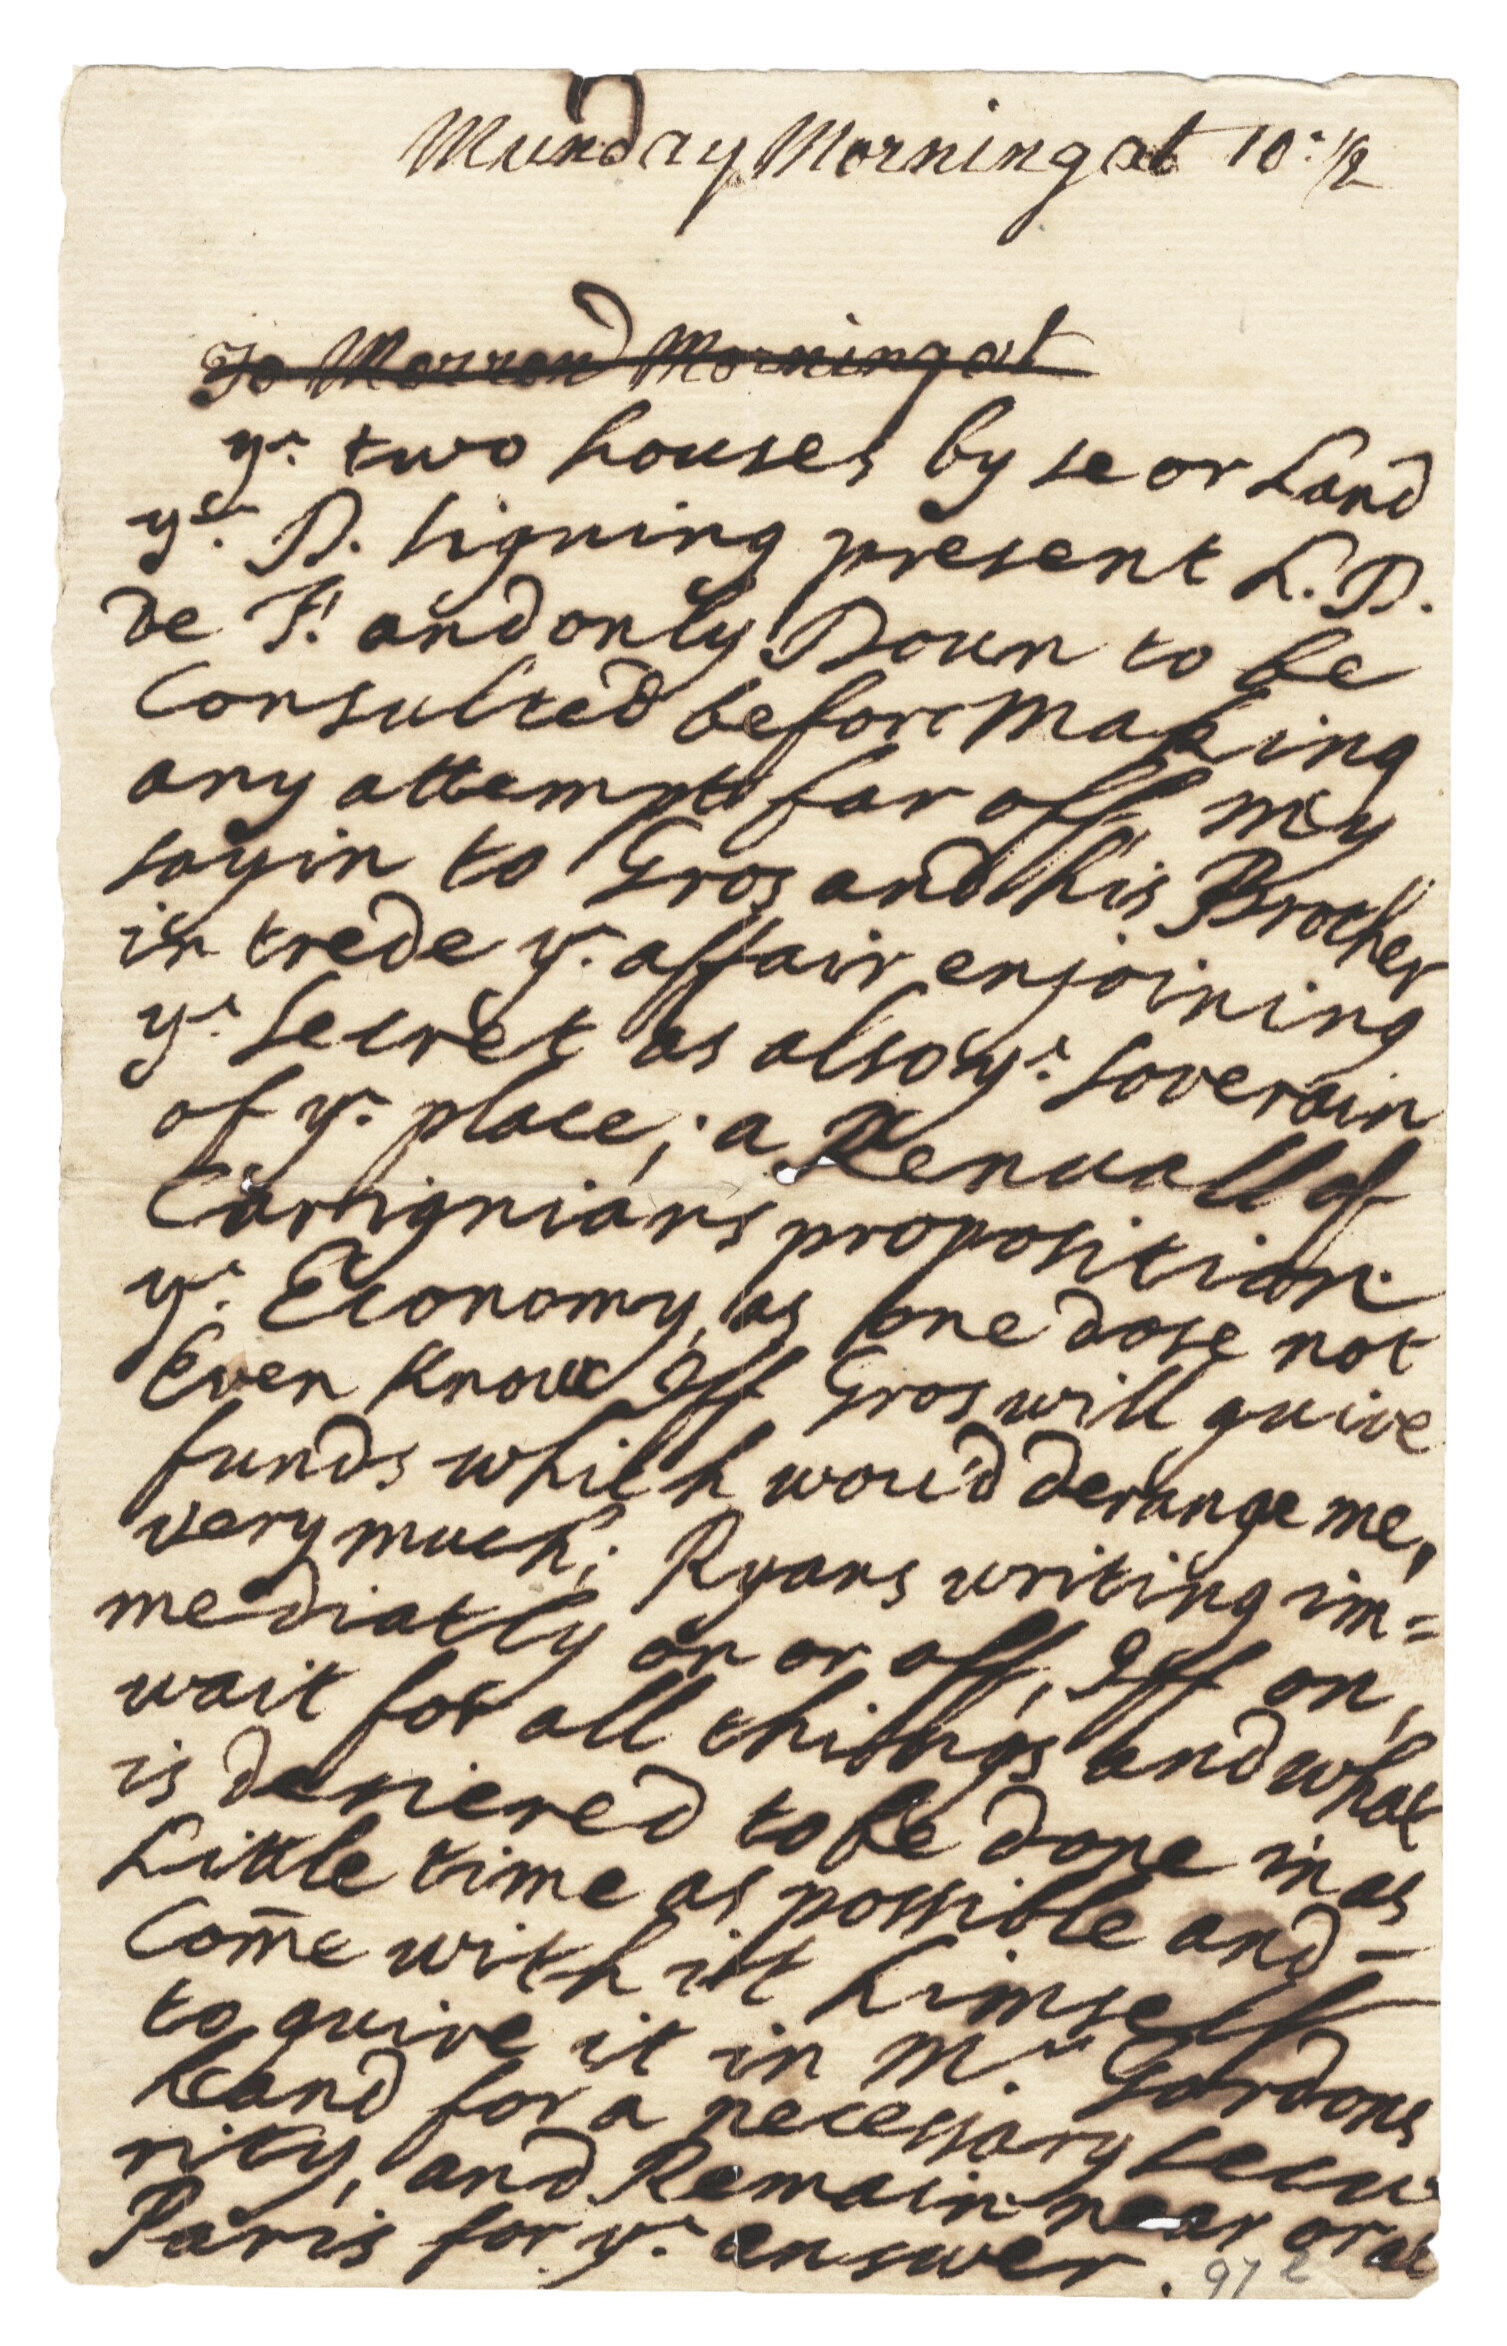 Munday Morning at 10:1/2
To Morrow Morning at
ye. two houses by se or Land
ye. D. signing present L. D.
de F! and only Doun to be
Consulted before Making
any attempts far off, my
sayin to Gros and his Brother
in trede ye. affair enjoining
ye. Secret as also ye. soverain
of ye. place; a Renuall of
Carignians proposition.
ye. Economy, as one dose not
Even know Iff Gros will guive
funds which wou'd derange me,
very much; Ryans writing im=
mediatly on or off, Iff on,
wait for all things and what
is desiered to be done in as
Little time as possible and -
Come with it himself
to guive it in Mrs. Gordons
hand for a necessary secu
rity, and Remain near or at
Paris for ye. answer.
97 2